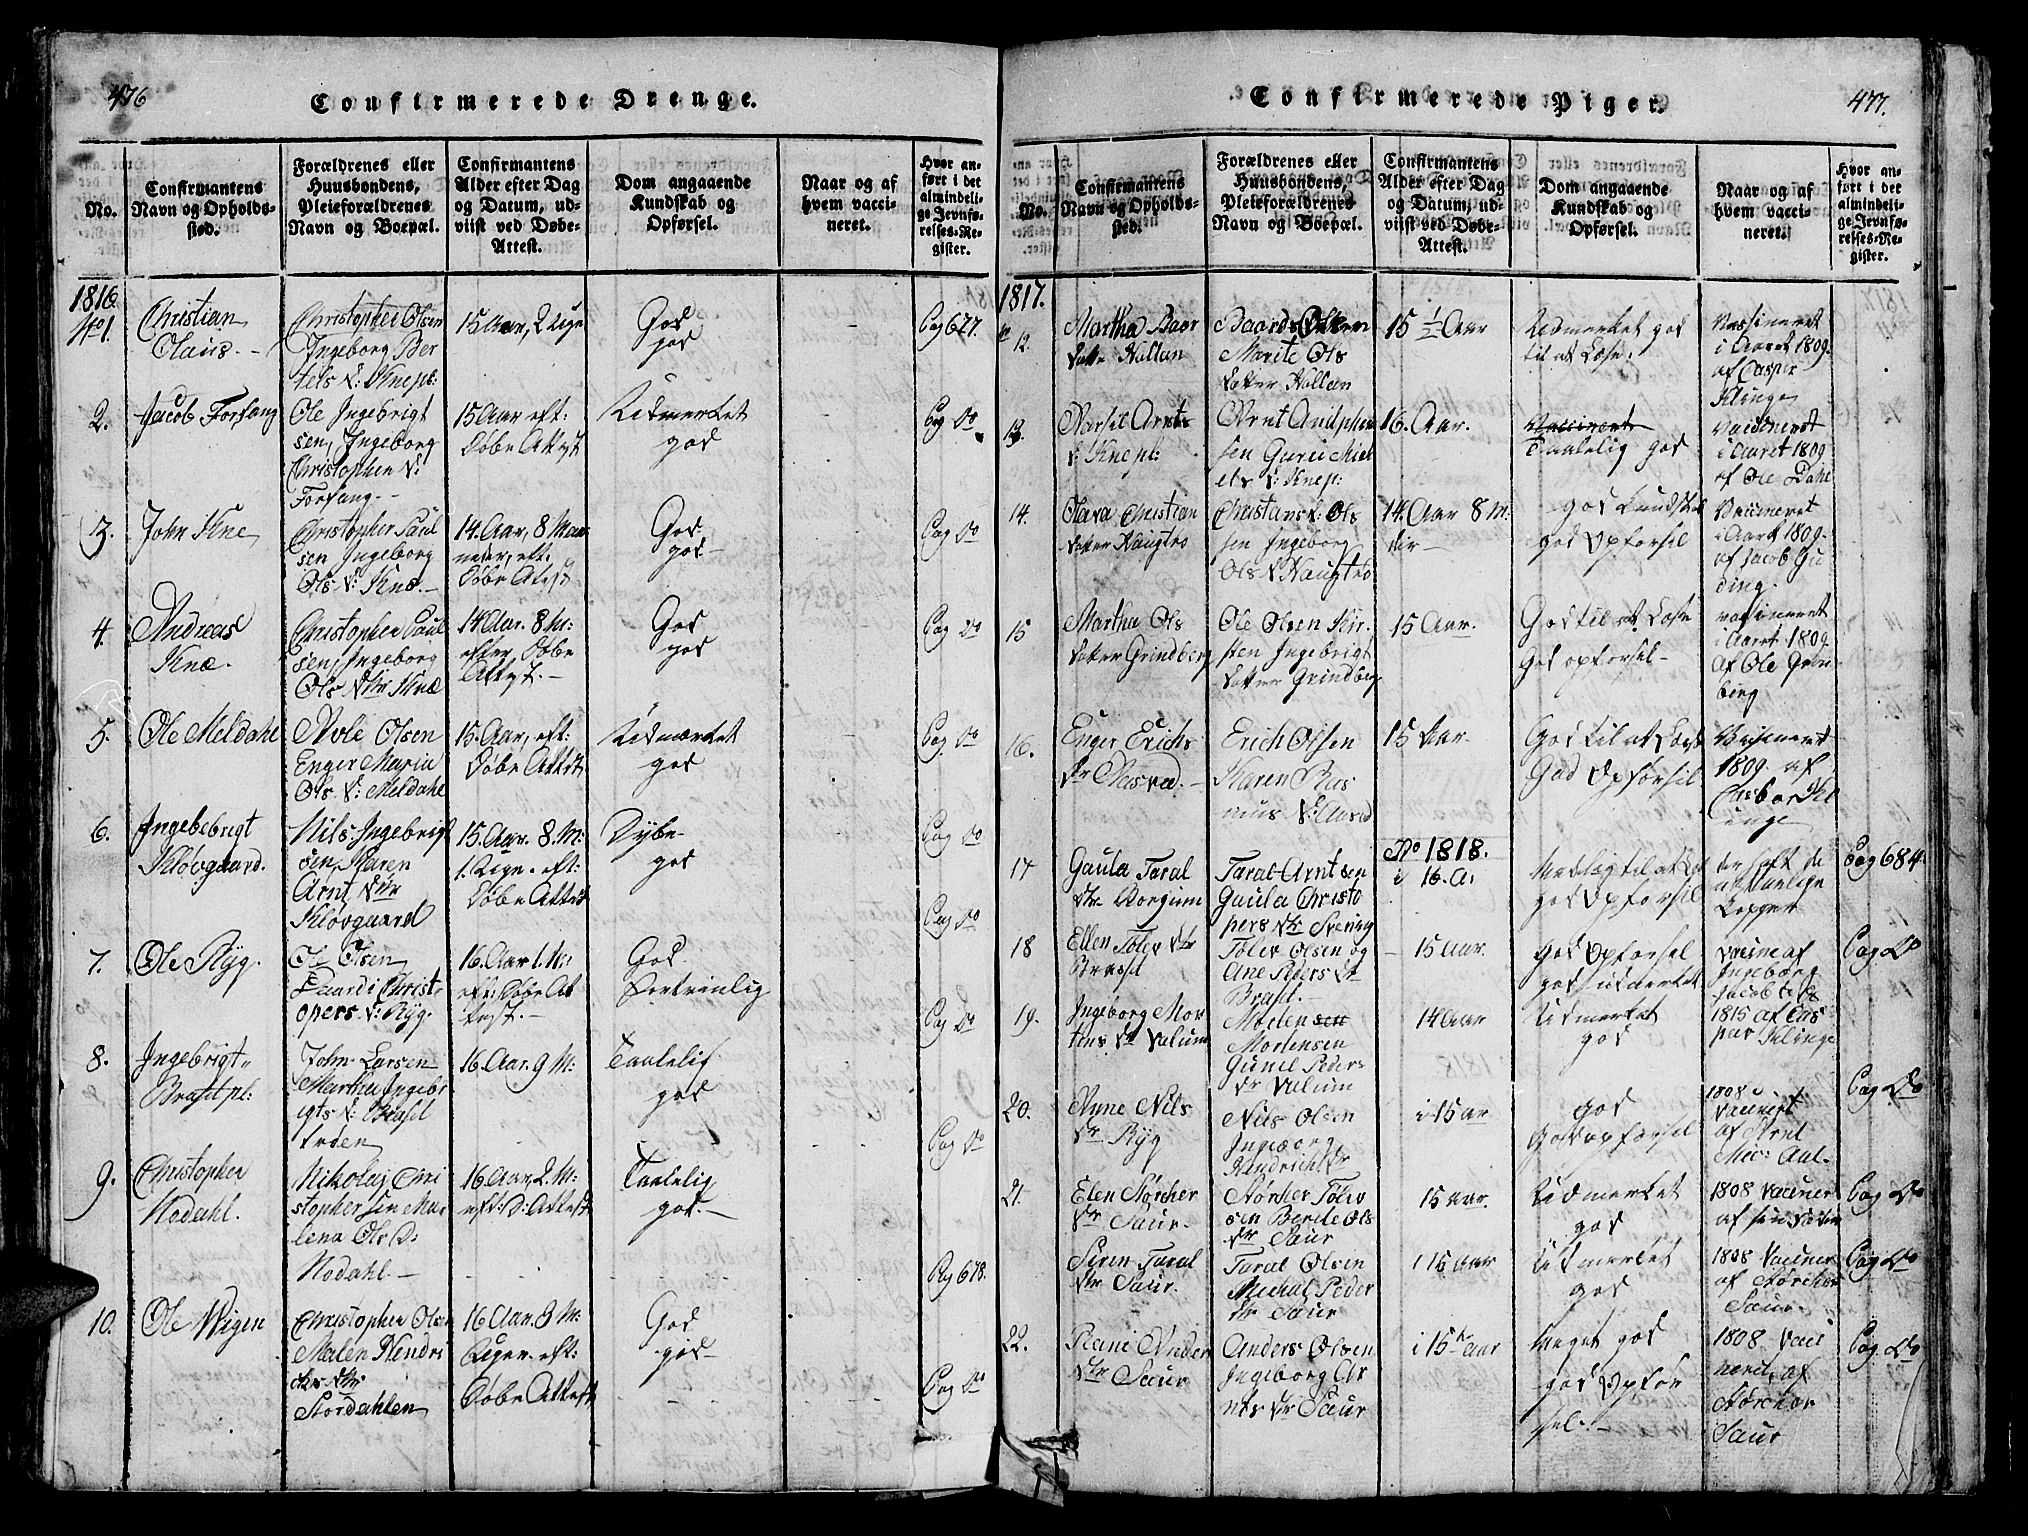 476
Confirmerede Drenge.
No.
Confirmantens
Navn og Opholds-
sted.
Forældrenes eller
Huusbondens,
Pleieforældrenes
Navn og Boepæl.
Confirmantens
Alder efter Dag
og Datum, ud-
viist ved Døbe-
Attest.
Dom angaaende
Kundskab og
Opførsel.
Naar og af
hvem vacci-
neret.
Hvor an-
ført i det
almindeli-
ge Jevnfø-
relses-Re-
gister.
1816.
No 1.
Christian
Olaus. -
Christopher Olsen
Ingeborg Ber
tels D: Knepl:
15 Aar, 2 Uger
God
god
Pag 677.
2.
Jacob Forfang
Ole Ingebrigt
sen, Ingeborg
Christopher D:
Forfang. -
15 Aar eft:
Døbe Attest
Udmerket
god
Pag Do
3.
John Kne
Christopher Paul
sen Ingeborg
Ols D: Knæ. -
14. Aar, 8 Maa
neder, eft.
Døbe Attest
God
god -
Pag Do
4.
Andreas
Knæ.
Christopher Paul
sen, Ingeborg
Ols Dtr Knæ
14 Aar. 8 M:
efter Døbe
Attest. -
God
god
Pag Do
5.
Ole Meldahl
Ole Olsen
Enger Maria
Ols D: Meldahl
15. Aar, eft:
Døbe Attest
Udmærket
god
Pag Do
6.
Ingebebrigt
Kløvgaard.
Nils Ingebrigt
sen, Karen
Arnt Dtr
Kløvgaard
15. Aar. 8. M:
1. Uge. eft:
Døbe Attest
god
Pag Do
Pag Do
7.
Ole Ryg.
Ole Olsen
Christ
opers D: Ryg.
16. Aar 1. M:
eft: Døbe At
test. -
God
Fortrinlig
Pag Do
8.
Ingebrigt
Brasetpl:
John Larsen
Martha Ingebr
igts D: Braset
trøen
16. Aar. 9 M:
Taalelig
god
Pag Do
9.
Christopher
Nodahl.
Nikolaij Chri
stophersen Mar
lena Ols D:
Nodahl -
16. Aar, 2. M:
eft: D: Attest
Taalelig
god. -
Pag 678.
10.
Ole Wigen
Christopher Olsen
Malen Hendri
chs Dtr
Stordahlen
16 Aar. 3 M:
Uger. eft:
Døbe Attest
God
god -
Pag Do
Confirmerede Piger.
477.
No.
Confirmantens
Navn og Opholds-
sted.
Forældrenes eller
Huusbondens,
Pleieforældrenes
Navn og Boepæl.
Confirmantens
Alder efter Dag
og Datum, ud-
viist ved Døbe-
Attest.
Dom angaaende
Kundskab og
Opførsel.
Naar og af
hvem vacci-
neret.
Hvor an-
ført i det
almindeli-
ge Jevnfø-
relses-Re-
gister.
1817.
12.
Martha Baar
datter Hallan
Baard
Marite Ols
datter Hallan
15 1/2 Aar
Udmerket god
til at Læse.
Vassineret
i Aaret 1809.
af Casper
Klinge
13.
Marsel Arnts
D: Knepl:
Arnt Andphin
sen Guru Miel
els D: Knep:
16. Aar.
Vaccineret
Taalelig god
Vaccineret
i Aaret 1809
af Ole Dahl
14.
Olava Christian
datter Haugtrø
Christian Ols
sen Ingeborg
Ols D Haugtrø
14. Aar 8 M:
god Kundskab
god Opførsel
Vaccineret
i Aaret 1809.
af Jacob Gu
ding.
15
Martha Ols
datter Grindberg
Ole Olsen Kir
sten Ingebrigt
datter Grindberg
15 Aar.
God til at Læse
God opførsel -
vaccineret
i Aaret 1809.
Af Ole Grin
berg
16.
Enger Erichs
Dr Aasved. -
Erich Olsen
Karen Ras
mus D: Aasved
15 Aar.
God til at Læse
God Opførsel
Vaccineret
1809. af
No 1818.
17
Gaula Taral
Dtr Borgum
Taral Arntsen
Gaula Christo
pers Dtr
i 16. A:
god Opførsel
de
naturlige
Kopper
Pag 684.
18
Ellen Tolev Dtr
Brasel
Tolev Olsen og
Ane Peders D
Brasel. -
- 15 Aar.
god Opførsel
god udmerket
Vaccine af
Ingeborg
Jacobs D
Pag Do
19.
Ingeborg Mor
tens D Valum
Morten
Mortensen
Gunel Peders
Dr Valum
14 Aar
Udmerket
god
1815 af Cas
par Klinge
20.
Anne Nils
Dr Ryg
Nils Olsen
Ingeborg
Hendrich Dr
i 15 ar
god
God opførsel
1808
Vaccinert
af Arnt
Pag Do
21.
Elen Storcher
Dtr Saur.
Storcher Tolev
sen Berite Ols
Dr Saur
15 Aar.
Udmerket
god
1808 Vaccinert
af sin Fader
Pag Do
Siren Taral
Dtr Saur.
Taral Olsen
Michal Peder
Dr Saur
i 15 Aar
Udmerket
god
1808 Vaccinert
af Storcher
Saur.
Pag Do
22.
Rani Ander
Dtr Saur
Anders Olsen
Ingeborg Ar
nts Dr Saur
i 15 aar
Meget god
god Opfør
sel. -
1808. Vacci
neret af
Storcher
Saur
Pag. Do